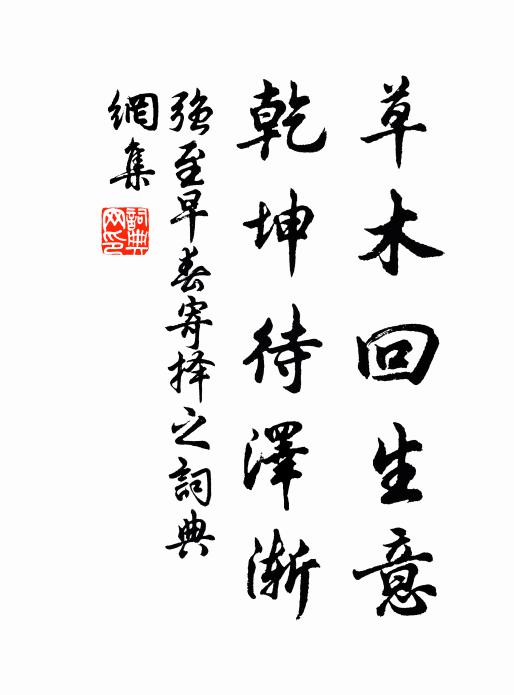 草木回生意
乾坤待澤漸
强至早春寄择之詞典
網集
詞典網印